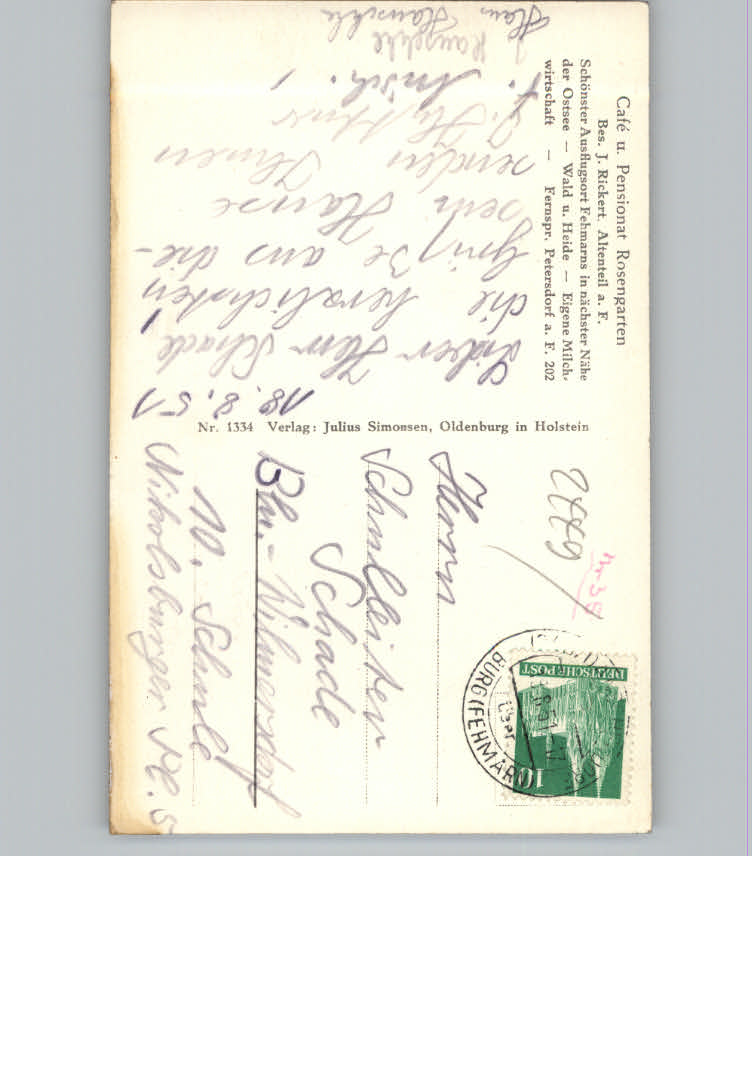 Café u. Pensionat Rosengarten
Bes. J. Rickert, Altenteil a. F.
Schönster Ausflugsort Fehmarns in nächster Nähe
der Ostsee — Wald u. Heide — Eigene Milch-
wirtschaft — Fernspr. Petersdorf a. F. 202
18.8.51
Lieber Herr Schade!
die herzlichsten
Grüße aus die-
sem Hause
senden Ihnen
Hans
Nr. 1334 Verlag: Julius Simonsen, Oldenburg in Holstein
Herrn
Schulleiter
Schade
Bln.-Wilmersdorf
10. Schule
Nikolsburger Pl. 5
DEUTSCHE POST
10
BURG (FEHMARN)